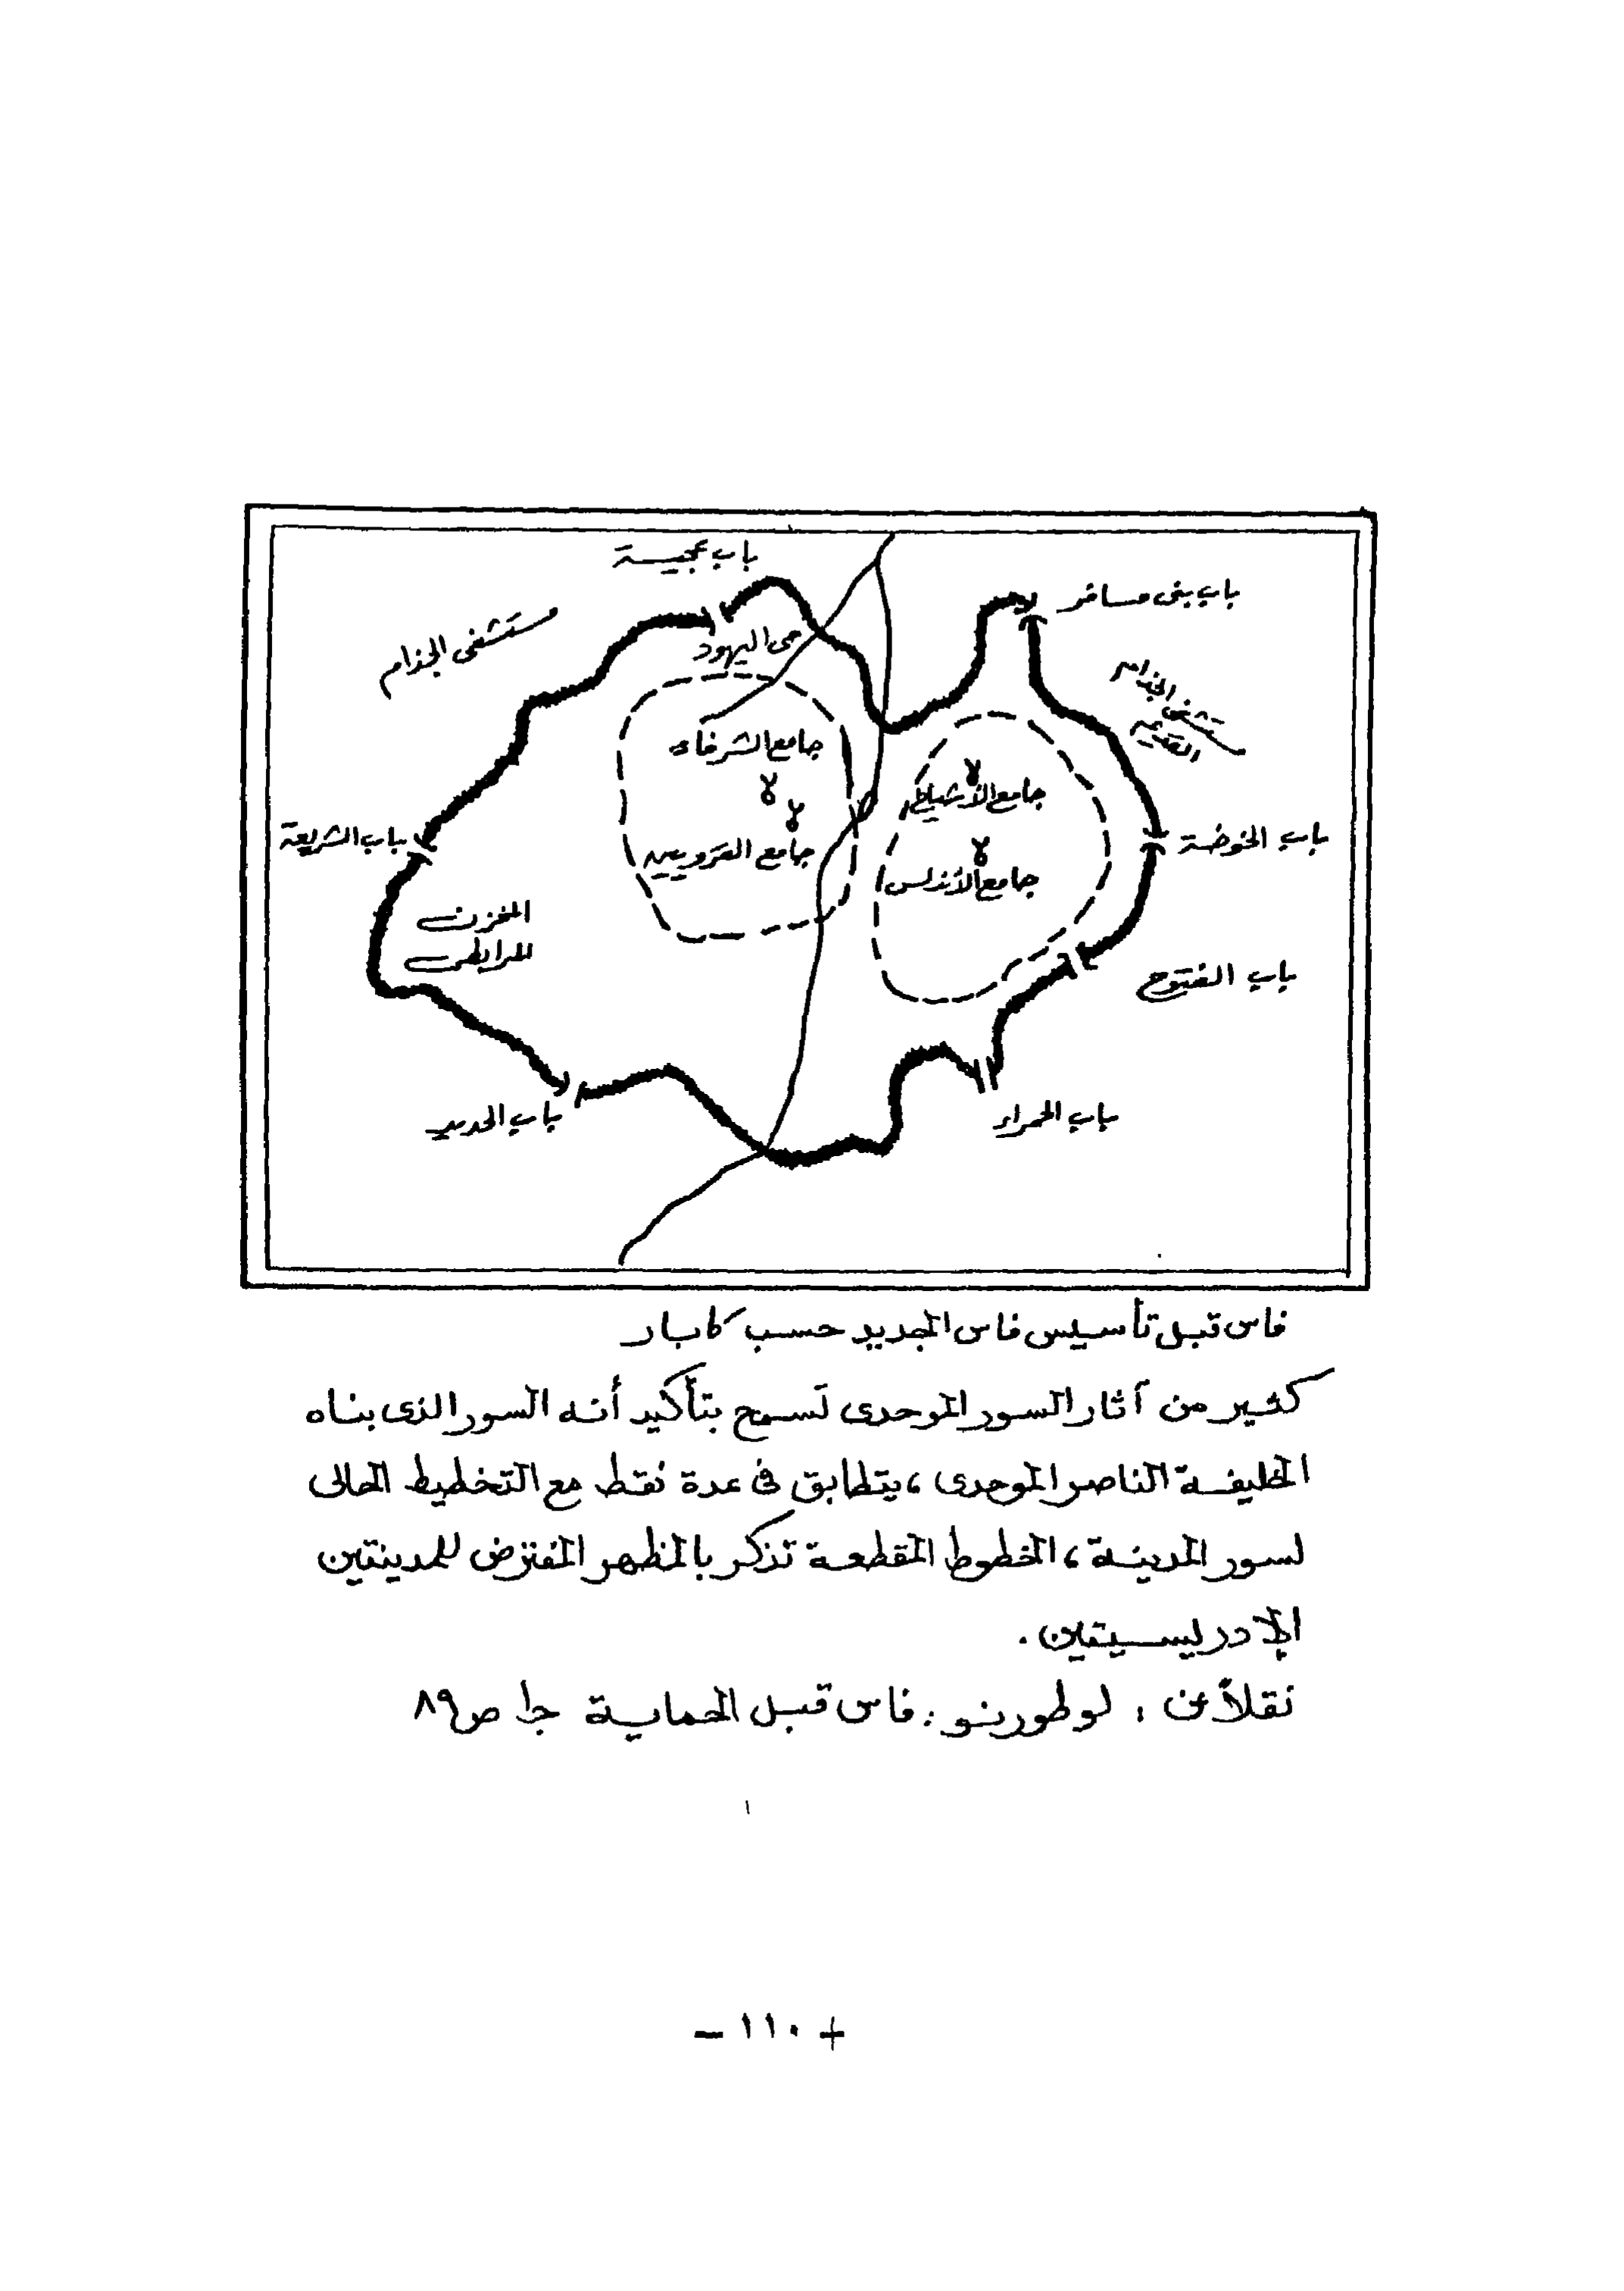 باب عجيسة
باب بنى مسافر
مستشفى الجذام
حى اليهود
مستشفى الجذام
القديمة
جامع الشرفاء
جامع الأشياخ
باب الشريعة
باب الخوخة
جامع القرويين
جامع الأندلس
المخزن
المرابطى
باب الفتوح
باب الحديد
باب الحمراء
فاس قبل تأسيس فاس الجديد حسب كابار
كثير من آثار السور الموحدى تسمح بتأكيد أنه السور الذى بناه
الخليفة الناصر الموحدى ، يتطابق فى عدة نقط مع التخطيط الحالى
لسور المدينة ، الخطوط المقطعة تذكر بالمظهر المفترض للمدينتين
الإدريسيتين .
نقلاً عن : لوطورنو : فاس قبل الحماية ج١ ص٨٩
- ١١٠ +